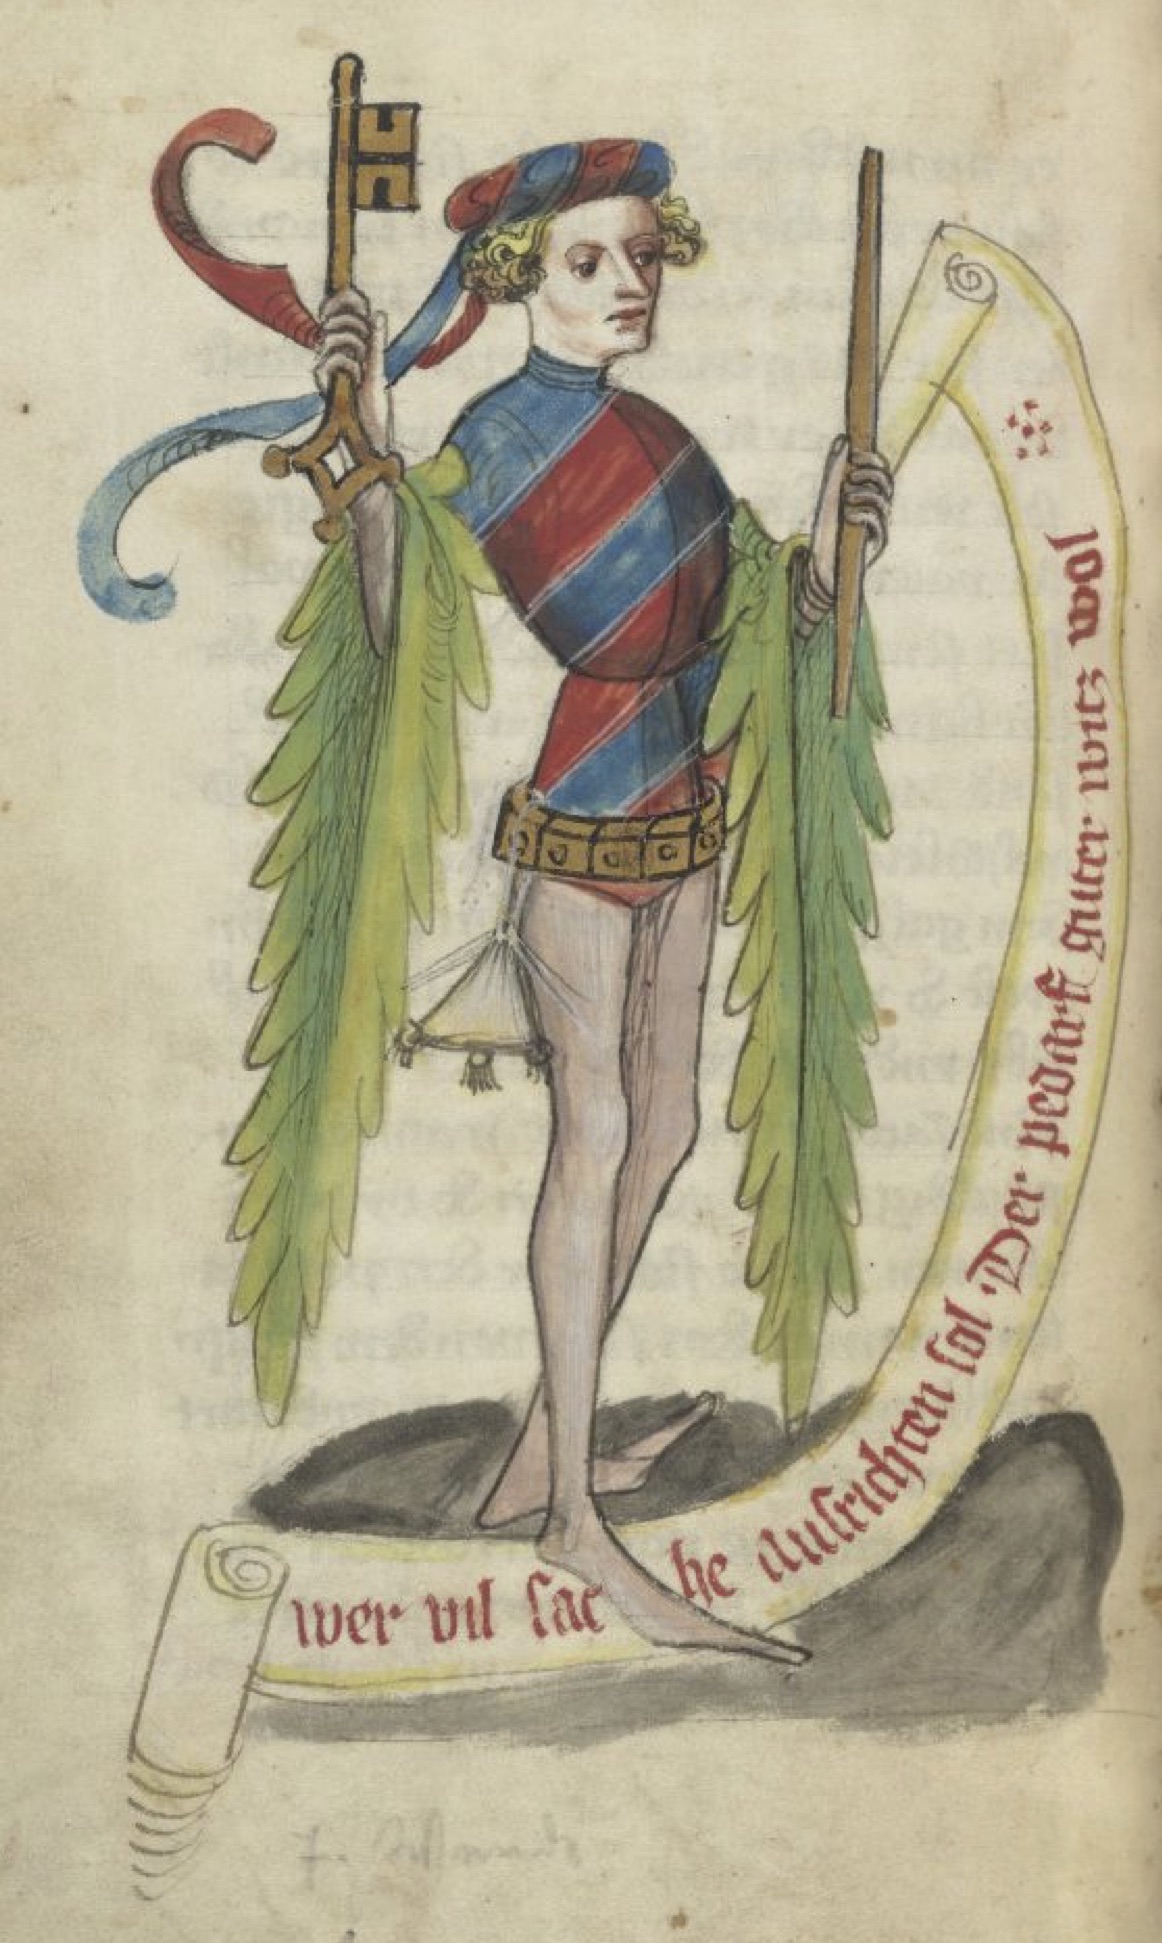 wer vil sache ausrichten sol · Der pedarff guter witz wol